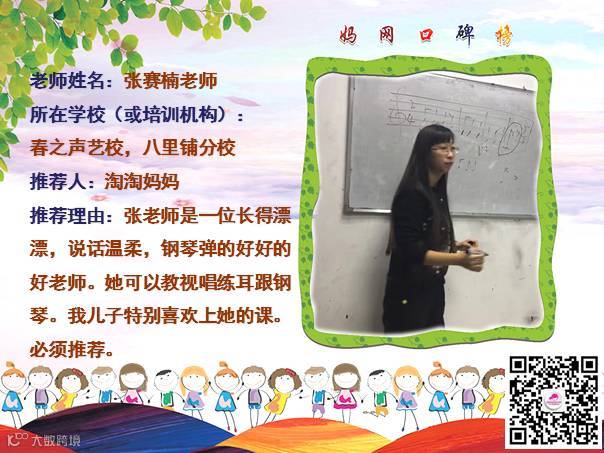 妈网口碑榜
老师姓名：张赛楠老师
所在学校（或培训机构）：
春之声艺校，八里铺分校
推荐人：淘淘妈妈
推荐理由：张老师是一位长得漂
漂，说话温柔，钢琴弹的好好的
好老师。她可以教视唱练耳跟钢
琴。我儿子特别喜欢上她的课。
必须推荐。
大数跨境